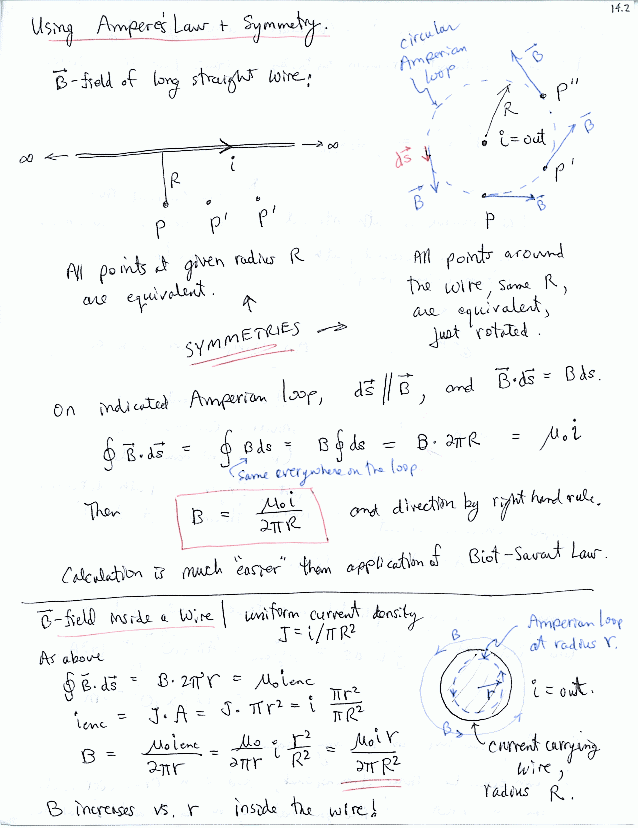 14.2
Using Ampere's Law + Symmetry.
B⃗-field of long straight wire:
∞ ← → ∞
i
R
P P' P'
circular
Amperian
loop
B⃗
P''
R
i = out
B⃗
ds⃗
P'
B⃗
P
B⃗
All points at given radius R
are equivalent.
All points around
the wire, same R,
are equivalent,
just rotated.
↑
SYMMETRIES →
On indicated Amperian loop, ds⃗ // B⃗, and B⃗·ds⃗ = B ds.
∮ B⃗·ds⃗ = ∮ B ds = B ∮ ds = B · 2πR = μ₀i
same everywhere on the loop
Then B = μ₀i / 2πR and direction by right hand rule.
Calculation is much "easier" than application of Biot-Savart Law.
B⃗-field inside a wire | uniform current density
J = i/πR²
As above
∮ B⃗·ds⃗ = B · 2πr = μ₀ i enc
i enc = J·A = J · πr² = i πr² / πR²
B = μ₀ i enc / 2πr = μ₀ / 2πr i r² / R² = μ₀ i r / 2πR²
B increases vs. r inside the wire!
B
Amperian loop
at radius r.
r
i = out.
B
current carrying
wire,
radius R.